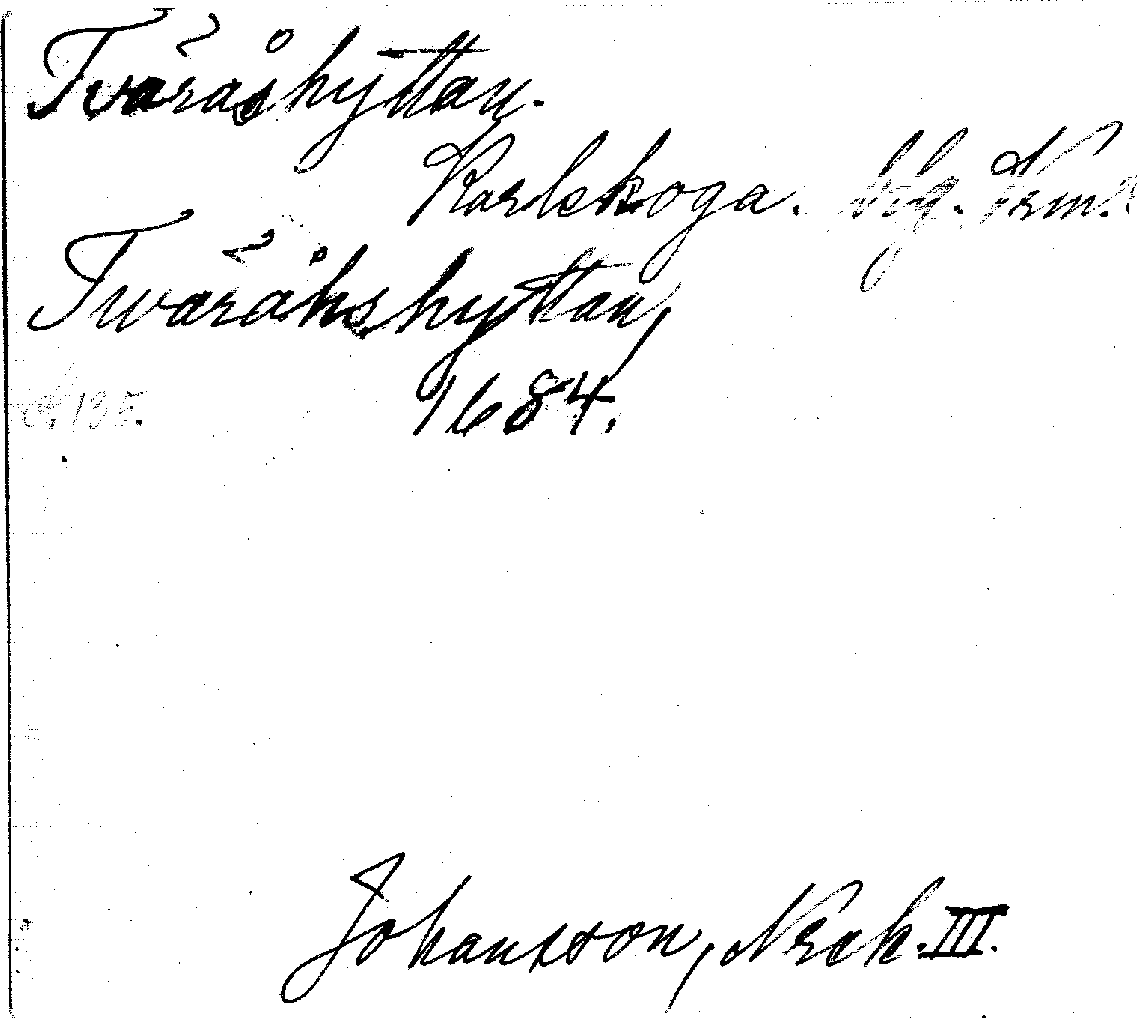 Tväråshyttan.
Karlskoga. bg. Vrml.
Twäråhshyttan,
s. 135. 1684.
Johansson, Nrck. III.